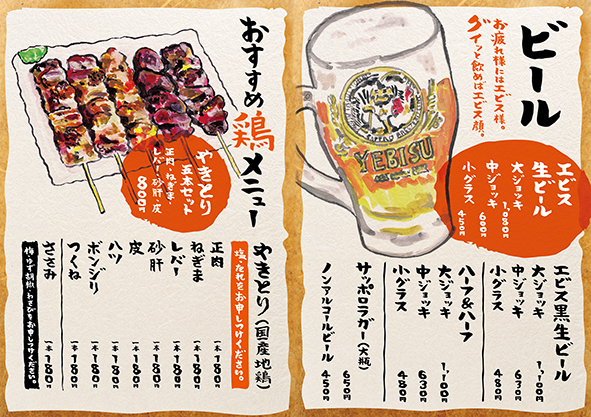 ビール
お疲れ様にはエビス様。
グイッと飲めばエビス顔。
YEBISU
エビス
生ビール
大ジョッキ 1,080円
中ジョッキ 600円
小グラス 450円
エビス黒生ビール
大ジョッキ 1,100円
中ジョッキ 630円
小グラス 480円
ハーフ&ハーフ
大ジョッキ 1,100円
中ジョッキ 630円
小グラス 480円
サッポロラガー(大瓶) 650円
ノンアルコールビール 450円
おすすめ鶏メニュー
やきとり
五本セット
正肉・ねぎま・
レバー・砂肝・皮
800円
やきとり(国産地鶏)
塩・たれをお申しつけください。
正肉 一本 180円
ねぎま 一本 180円
レバー 一本 180円
砂肝 一本 180円
皮 一本 180円
ハツ 一本 180円
ボンジリ 一本 180円
つくね 一本 180円
ささみ 一本 180円
梅・ゆず胡椒・わさびをお申しつけください。